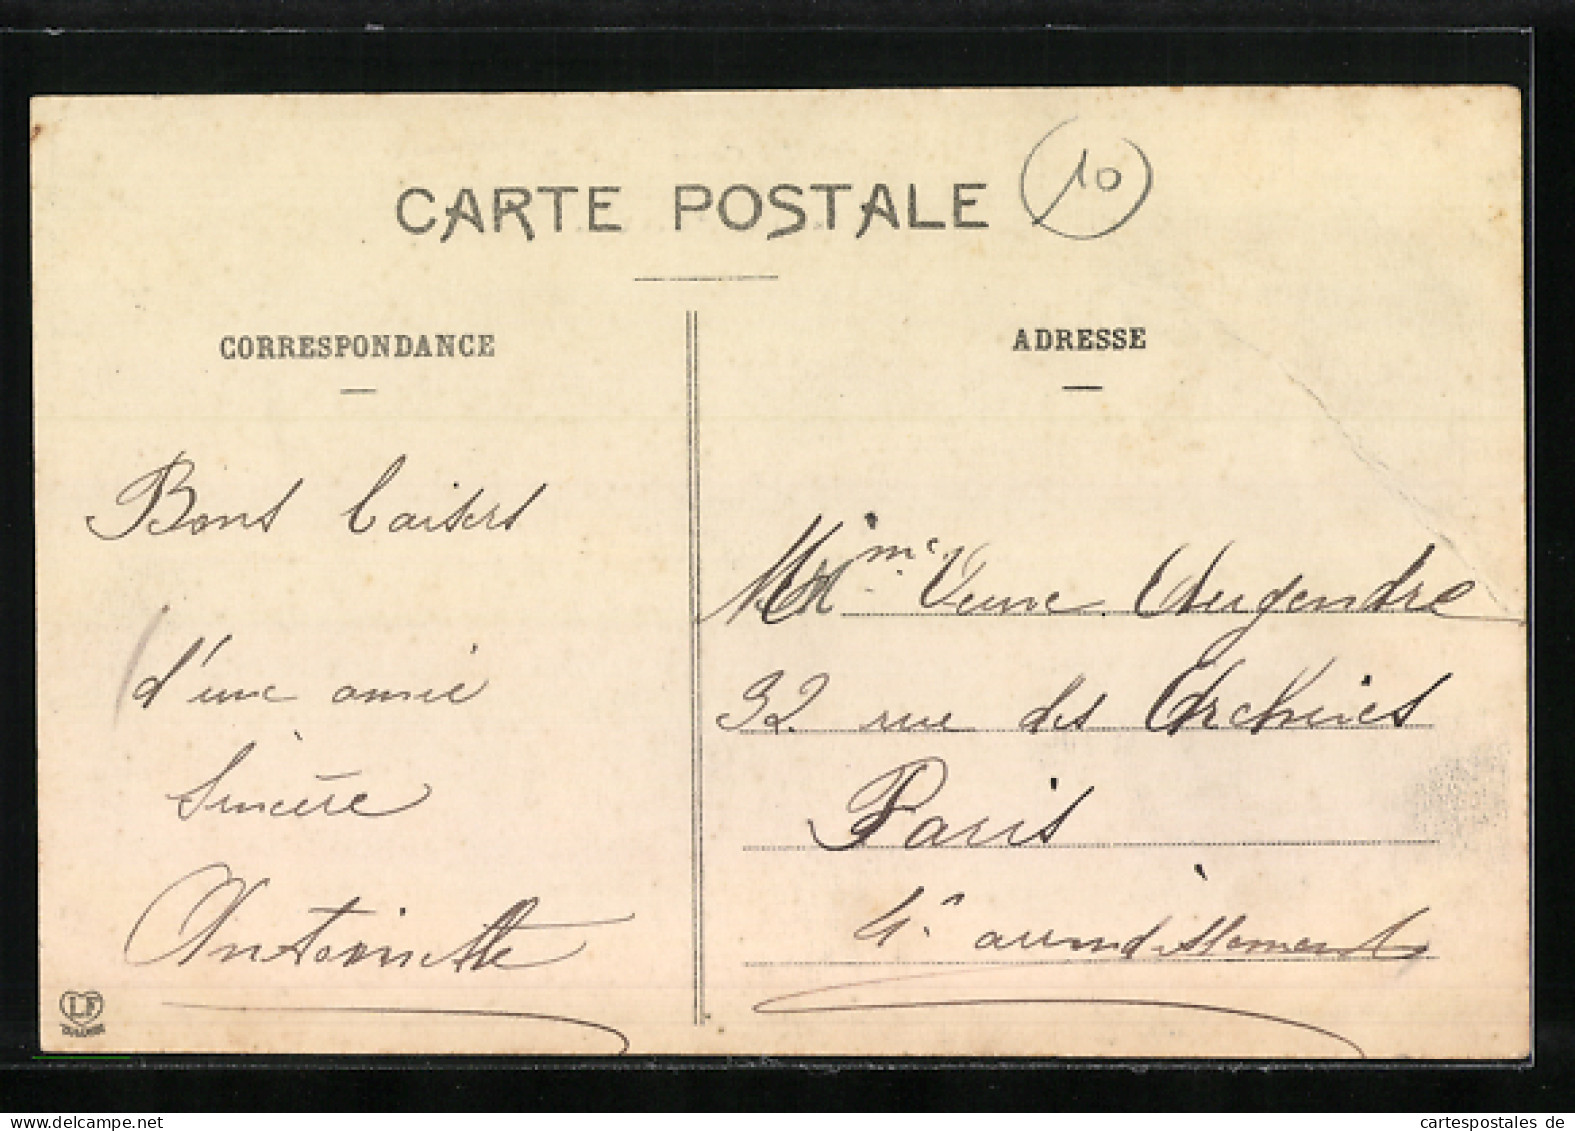 CARTE POSTALE
10
CORRESPONDANCE
ADRESSE
Bons baisers
d'une amie
sincère
Antoinette
Mme Veuve Augendre
92 rue des Archives
Paris
4e arrondissement
LF
TOULOUSE
www.delcampe.net
cartespostales de